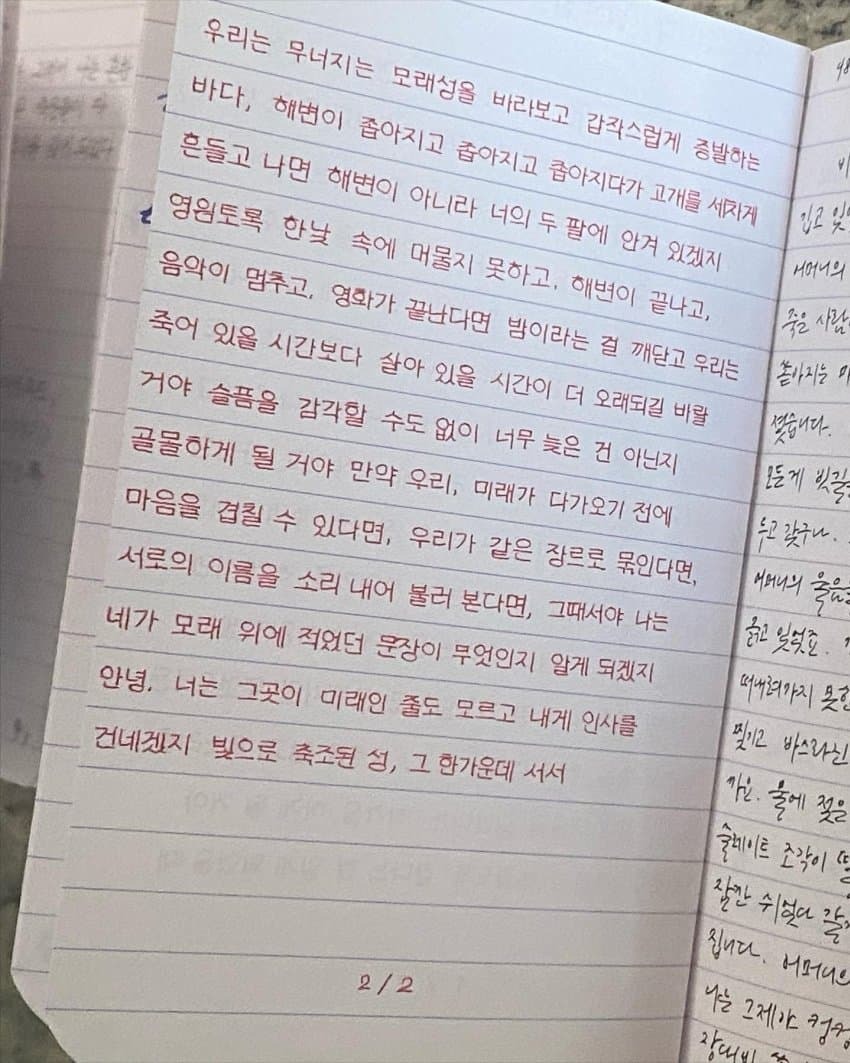 우리는 무너지는 모래성을 바라보고 갑작스럽게 증발하는
바다, 해변이 좁아지고 좁아지고 좁아지다가 고개를 세차게
흔들고 나면 해변이 아니라 너의 두 팔에 안겨 있겠지
영원토록 한낮 속에 머물지 못하고, 해변이 끝나고,
음악이 멈추고, 영화가 끝난다면 밤이라는 걸 깨닫고 우리는
죽어 있을 시간보다 살아 있을 시간이 더 오래되길 바랄
거야 슬픔을 감각할 수도 없이 너무 늦은 건 아닌지
골몰하게 될 거야 만약 우리, 미래가 다가오기 전에
마음을 겹칠 수 있다면, 우리가 같은 장르로 묶인다면,
서로의 이름을 소리 내어 불러 본다면, 그때서야 나는
네가 모래 위에 적었던 문장이 무엇인지 알게 되겠지
안녕, 너는 그곳이 미래인 줄도 모르고 내게 인사를
건네겠지 빛으로 축조된 성, 그 한가운데 서서
2/2
48
비
깁고 있
어머니의
죽은 사람
쏟아지는
졌습니다.
모든게 빗길
두고 갔구나.
어머니의 울음
긁고 있었죠.
떠내려가지 못한
찢기고 바스라진
가요. 물에 젖을
슬레이트 조각이
잠깐 쉬었다 갈
집니다. 어머니의
나는 그제야 컹컹
장대비